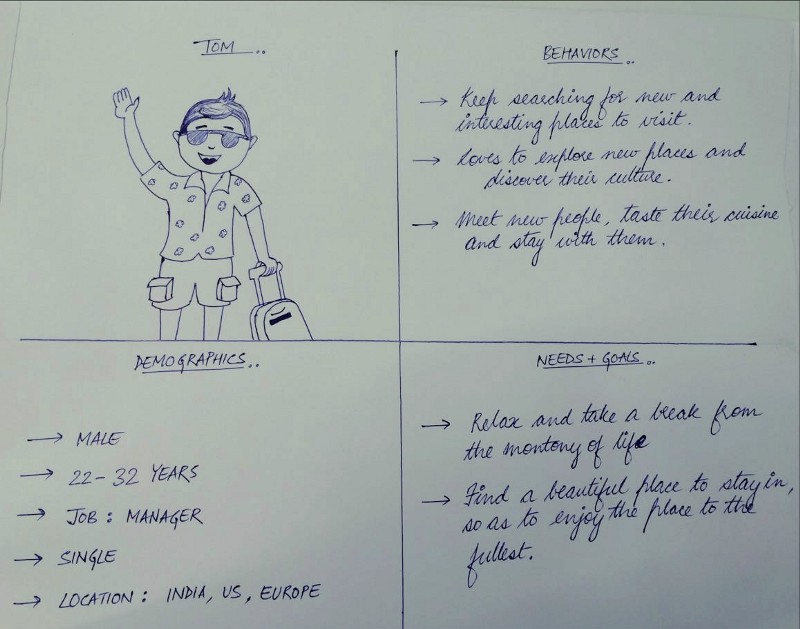 TOM ..
BEHAVIORS ..
→ Keep searching for new and
interesting places to visit.
→ Loves to explore new places and
discover their culture.
→ Meet new people, taste their cuisine
and stay with them.
DEMOGRAPHICS ..
→ MALE
→ 22-32 YEARS
→ JOB : MANAGER
→ SINGLE
→ LOCATION : INDIA, US, EUROPE
NEEDS + GOALS ..
→ Relax and take a break from
the montony of life
→ Find a beautiful place to stay in,
so as to enjoy the place to the
fullest.